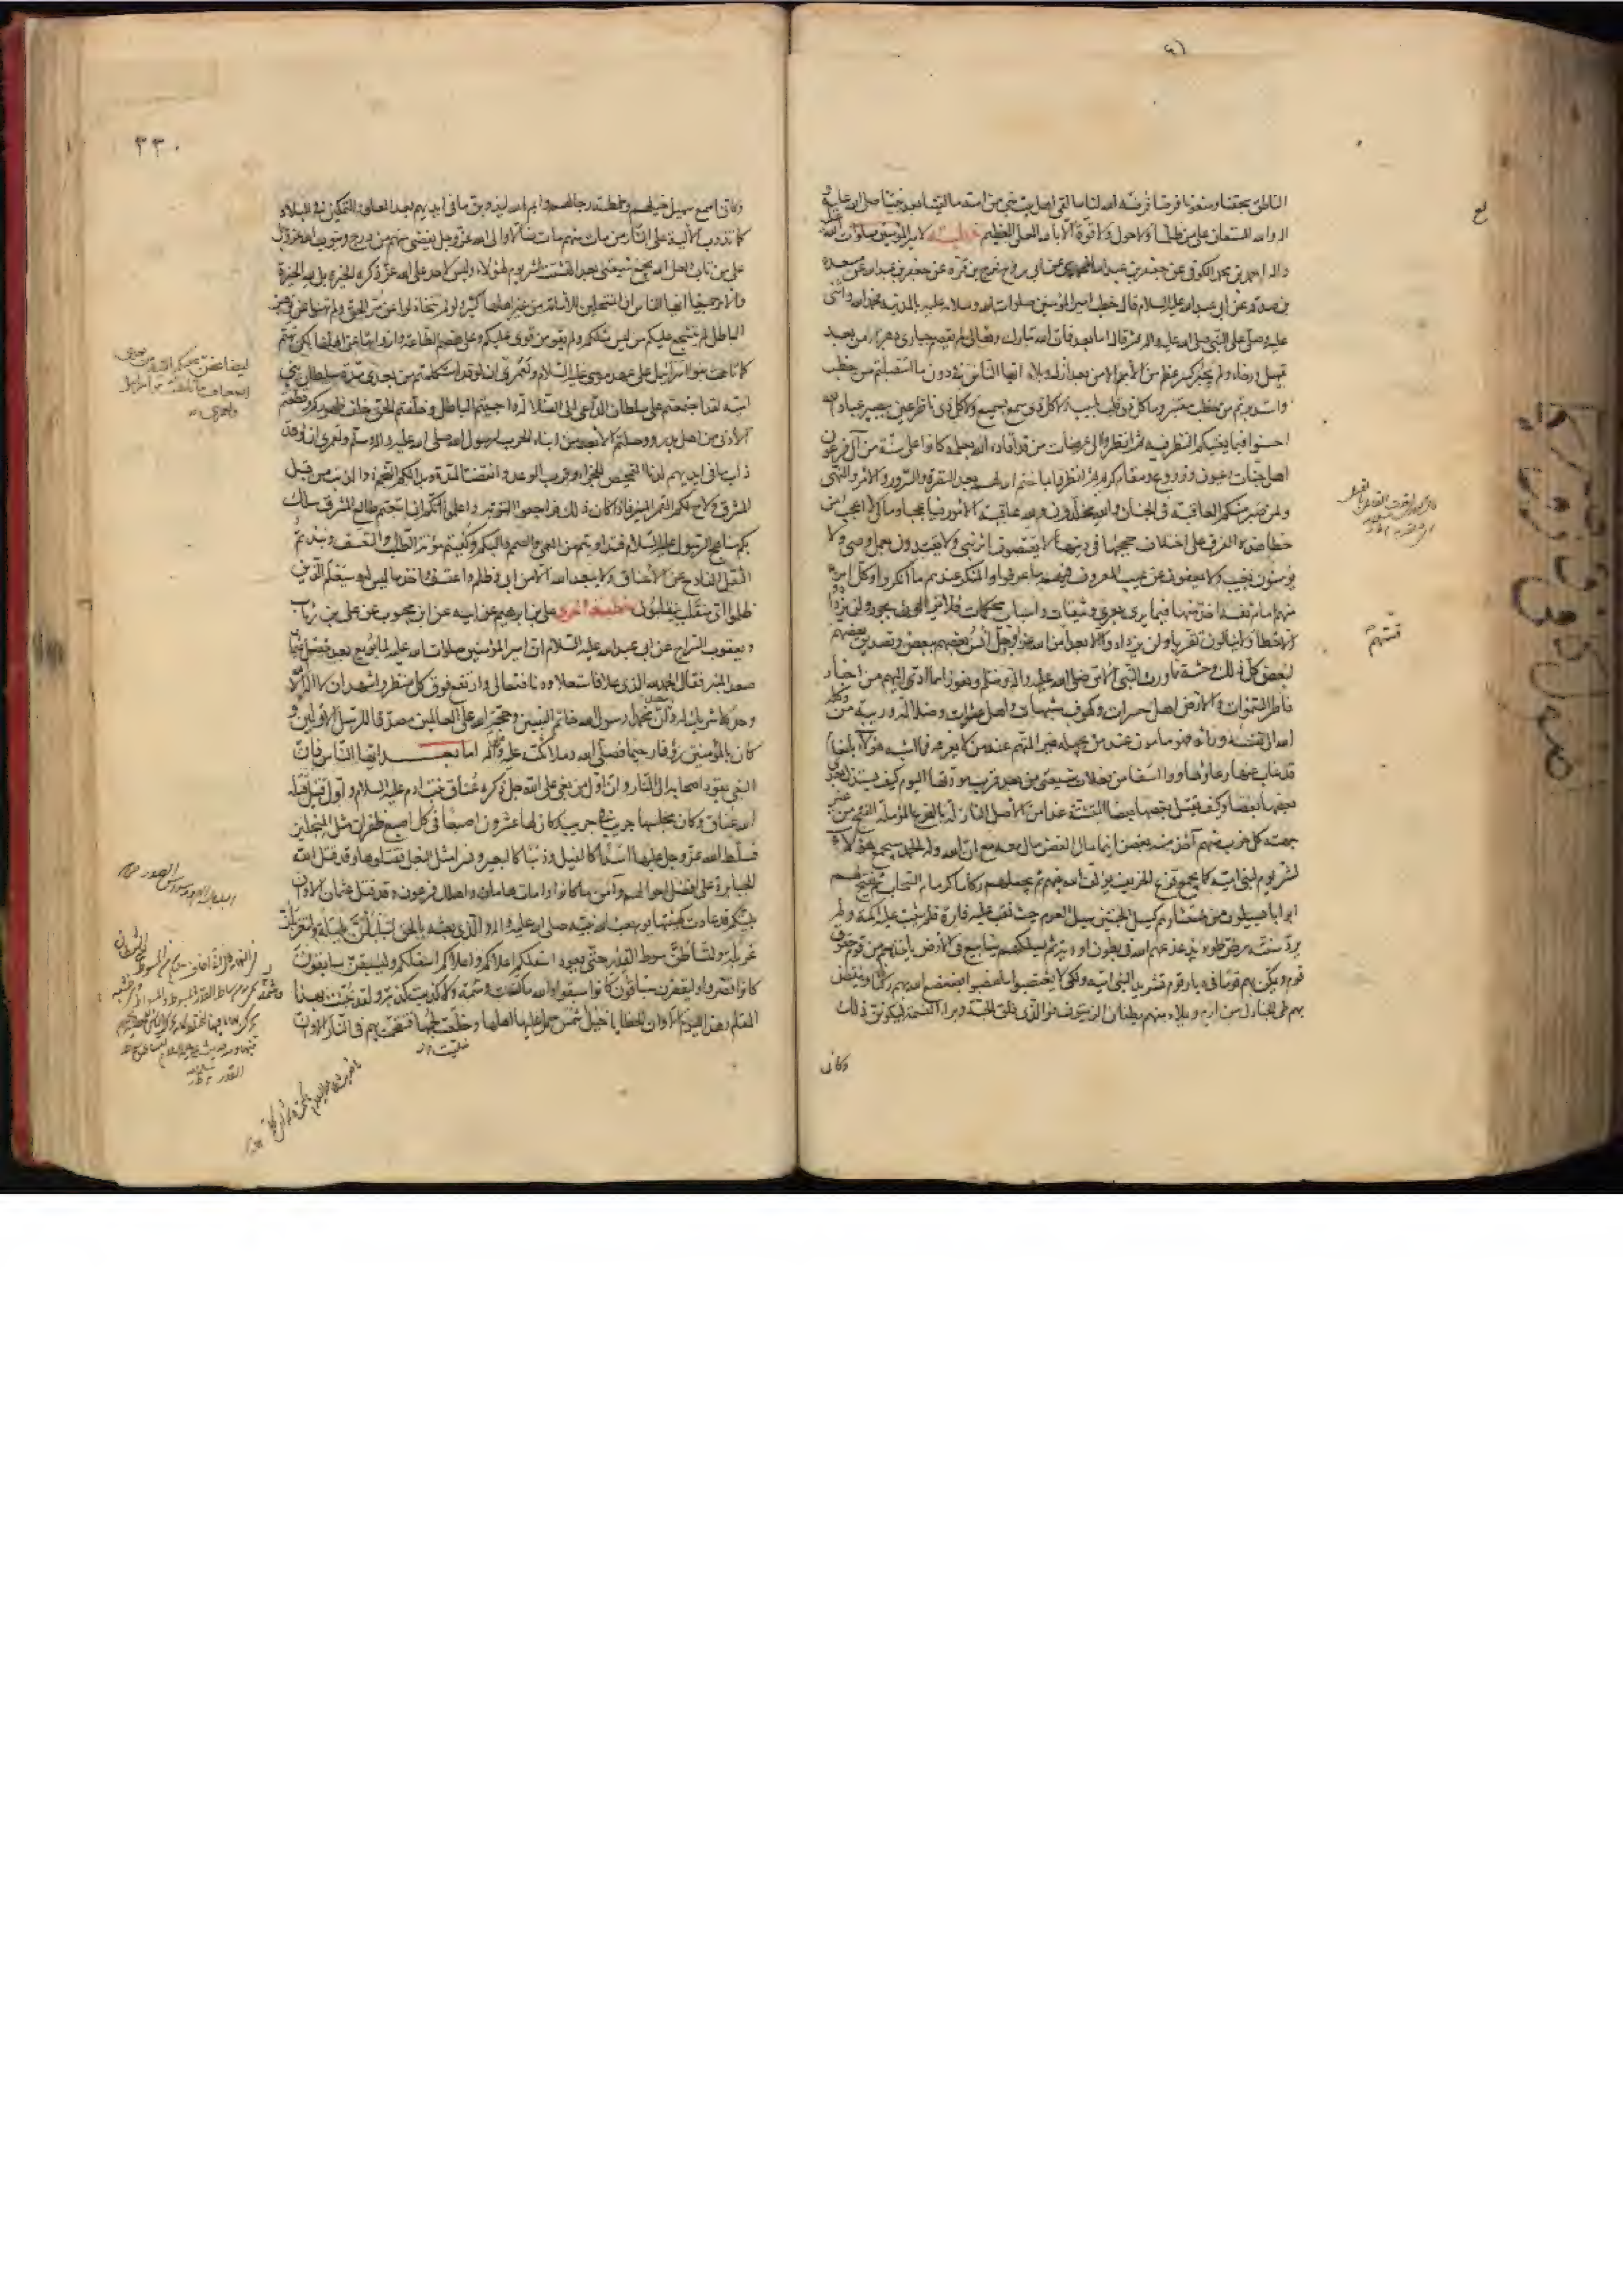 الناطق بحقنا ومنعونا فرضا فرضه الله لنا ما لقى اهل بيت نبي من امته ما لقينا بعد نبينا صلى الله عليه و
اله والله المستعان على من ظلمنا ولا حول ولا قوة الا بالله العلى العظيم خطبة لامير المؤمنين صلوات الله
احمد بن محمد الكوفى عن جعفر بن عبد الله المحمدى عن ابى روح فرج بن قرة عن جعفر بن عبد الله عن مسعدة
بن صدقة عن ابى عبد الله عليه السلام قال خطب امير المؤمنين صلوات الله وسلامه عليه بالمدينة فحمد الله واثنى
عليه وصلى على النبى صلى الله عليه واله ثم قال اما بعد فان الله تبارك وتعالى لم يقصم جبارى دهر الا من بعد
تمهيل ورخاء ولم يجبر كسر عظم من الامم الا من بعد ازل وبلاء ايها الناس فى دون ما استقبلتم من خطب
واستدبرتم من خطب معتبر وما كل ذى قلب بلبيب ولا كل ذى سمع بسميع ولا كل ذى ناظر عين ببصير عباد الله
احسنوا فيما يعنيكم النظر فيه ثم انظروا الى عرصات من قد اقاده الله بعلمه كانوا على سنة من آل فرعون
اهل جنات وعيون وزروع ومقام كريم ثم انظروا بما ختم الله لهم بعد النضرة والسرور والامر والنهى
ولمن صبر منكم العاقبة فى الجنان والله مخلدون ولله عاقبة الامور فيا عجبا وما لى لا اعجب من
خطا هذه الفرق على اختلاف حججها فى دينها لا يقتصون اثر نبى ولا يقتدون بعمل وصى ولا
يؤمنون بغيب ولا يعفون عن عيب المعروف فيهم ما عرفوا والمنكر عندهم ما انكروا وكل امرء
منهم امام نفسه اخذ منها فيما يرى بعرى وثيقات واسباب محكمات فلا يزالون بجور ولن يزدادوا
الا خطا لا ينالون تقربا ولن يزدادوا الا بعدا من الله عز وجل انس بعضهم ببعض وتصديق بعضهم
لبعض كل ذلك وحشة مما ورث النبى الامى صلى الله عليه واله وسلم ونفورا مما ادى اليهم من اخبار
فاطر السموات والارض اهل حسرات وكهوف شبهات واهل عشوات وضلالة وريبة من وكله
الله الى نفسه ورايه فهو مامون عند من يجهله غير المتهم عند من لا يعرفه فما اشبه هؤلاء بانعام
قد غاب عنها رعاؤها ووا اسفا من فعلات شيعتى من بعد قرب مودتها اليوم كيف يستذل بعدى
بعضها بعضا وكيف يقتل بعضها بعضا المتشتتة غدا عن الاصل النازلة بالفرع المؤملة الفتح من غير
جهته كل حزب منهم آخذ منه بغصن اينما مال الغصن مال معه مع ان الله وله الحمد سيجمع هؤلاء
لشر يوم لبنى امية كما يجمع قزع الخريف يؤلف الله بينهم ثم يجعلهم ركاما كركام السحاب ثم يفتح لهم
ابوابا يسيلون من مستثارهم كسيل الجنتين سيل العرم حيث نقب عليه فارة فلم يثبت عليه اكمة ولم
يرد سننه رض طود يذعذعهم الله فى بطون اودية ثم يسلكهم ينابيع فى الارض ياخذ بهم من قوم حقوق
قوم ويمكن بهم قوما فى ديار قوم تشريدا لبنى امية ولكى لا يغتصبوا ما غصبوا يضعضع الله بهم ركنا وينقض
بهم طى الجنادل من ارم ويملاء منهم بطنان الزيتون فو الذى فلق الحبة وبرا النسمة ليكونن ذلك
وكانى
قسّتهم
٣٣٠
وكانى اسمع صهيل خيلهم وطمطمة رجالهم وايم الله ليذوبن ما فى ايديهم بعد العلو والتمكين فى البلاد
كما تذوب الالية على النار من مات منهم مات ضالا والى الله عز وجل يفضى منهم من درج ويتوب الله عز وجل
على من تاب ولعل الله يجمع شيعتى بعد التشتت لشر يوم لهؤلاء وليس لاحد على الله عز ذكره الخيرة بل لله الخيرة
والامر جميعا ايها الناس ان المنتحلين للامامة من غير اهلها كثير ولو لم تتخاذلوا عن مر الحق ولم تهنوا عن توهين
الباطل لم يتشجع عليكم من ليس مثلكم ولم يقو من قوى عليكم وعلى هضم الطاعة وازوائها عن اهلها لكن تهتم
كما تاهت بنو اسرائيل على عهد موسى عليه السلام ولعمرى ان لو قد استكملتم من بعدى مدة سلطان بنى
امية لقد اجتمعتم على سلطان الداعى الى الضلالة واحييتم الباطل وخلفتم الحق خلف ظهوركم وقطعتم
الادنى من اهل بدر ووصلتم الابعد من ابناء الحرب لرسول الله صلى الله عليه واله وسلم ولعمرى ان لو قد
ذاب ما فى ايديهم لدنا التمحيص للجزاء وقرب الوعد وانقضت المدة وبدا لكم النجم ذو الذنب من قبل
المشرق ولاح لكم القمر المنير فاذا كان ذلك فراجعوا التوبة واعلموا انكم ان اتبعتم طالع المشرق سلك
بكم مناهج الرسول عليه السلام فتداويتم من العمى والصمم والبكم وكفيتم مؤنة الطلب والتعسف ونبذتم
الثقل الفادح عن الاعناق ولا يبعد الله الا من ابى وظلم واعتسف واخذ ما ليس له وسيعلم الذين
ظلموا اى منقلب ينقلبون خطبة اخرى على بن ابرهيم عن ابيه عن ابن محبوب عن على بن رئاب
ويعقوب السراج عن ابى عبد الله عليه السلام ان امير المؤمنين صلوات الله عليه لما بويع بعد مقتل عثمان
صعد المنبر فقال الحمد لله الذى علا فاستعلا ودنا فتعالى وارتفع فوق كل منظر واشهد ان لا اله الا الله
وحده لا شريك له وان محمدا رسول الله خاتم النبيين وحجة الله على العالمين مصدقا للرسل الاولين و
كان بالمؤمنين رؤفا رحيما فصلى الله وملائكته عليه واله اما بعد ايها الناس فان
البغى يقود اصحابه الى النار وان اول من بغى على الله جل ذكره عناق بنت ادم عليه السلام واول قتيل قتله
الله عناق وكان مجلسها جريبا فى جريب وكان لها عشرون اصبعا فى كل اصبع ظفران مثل المنجلين
فسلط الله عز وجل عليها اسدا كالفيل وذئبا كالبعير ونسرا مثل البغل فقتلوها وقد قتل الله
الجبابرة على افضل احوالهم وآمن ما كانوا وامات هامان واهلك فرعون وقد قتل عثمان الا وان
بليتكم قد عادت كهيئتها يوم بعث الله نبيه صلى الله عليه واله والذى بعثه بالحق لتبلبلن بلبلة ولتغربلن
غربلة ولتساطن سوط القدر حتى يعود اسفلكم اعلاكم واعلاكم اسفلكم وليسبقن سابقون
كانوا قصروا وليقصرن سباقون كانوا سبقوا والله ما كتمت وشمة ولا كذبت كذبة ولقد نبئت بهذا
المقام وهذا اليوم الا وان الخطايا خيل شمس حمل عليها اهلها وخلعت لجمها فتقحمت بهم فى النار الا وان